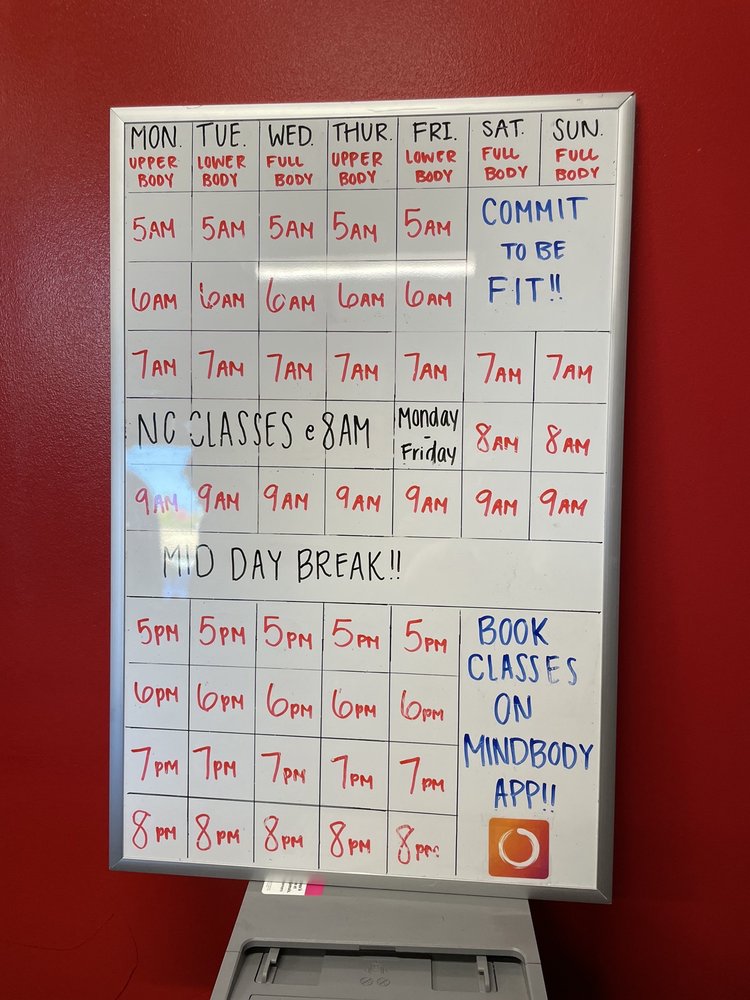 MON. TUE. WED. THUR. FRI. SAT. SUN.
UPPER LOWER FULL UPPER LOWER FULL FULL
BODY BODY BODY BODY BODY BODY BODY
5AM 5AM 5AM 5AM 5AM
COMMIT
TO BE
FIT!!
6AM 6AM 6AM 6AM 6AM
7AM 7AM 7AM 7AM 7AM 7AM 7AM
NO CLASSES @ 8AM
Monday
-
Friday
8AM 8AM
9AM 9AM 9AM 9AM 9AM 9AM 9AM
MID DAY BREAK!!
5PM 5PM 5PM 5PM 5PM
6PM 6PM 6PM 6PM 6PM
7PM 7PM 7PM 7PM 7PM
8PM 8PM 8PM 8PM 8PM
BOOK
CLASSES
ON
MINDBODY
APP!!